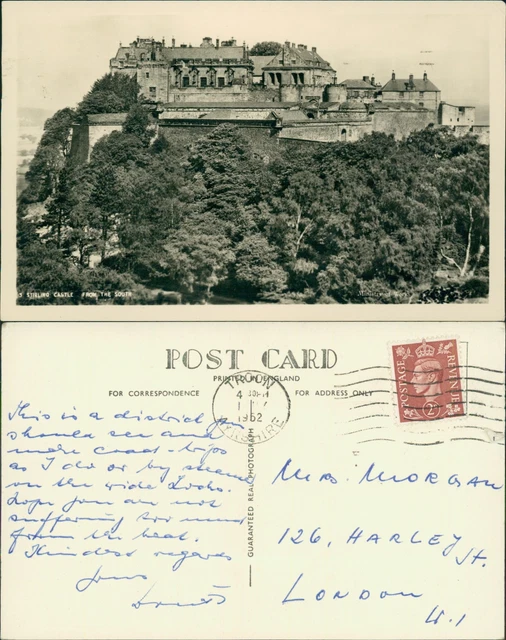 5 STIRLING CASTLE FROM THE SOUTH
POST CARD
PRINTED IN ENGLAND
FOR CORRESPONDENCE
FOR ADDRESS ONLY
4
1952
SHIRE
POSTAGE
REVENUE
2D
GUARANTEED REAL PHOTOGRAPH
This is a district you
should see and
make coach-trips
as I do or by steamer
on the wide Lochs.
Hope you are not
suffering too much
from the heat.
Kindest regards
Yours
Mrs. MORGAN
126, HARLEY St.
LONDON
W.1